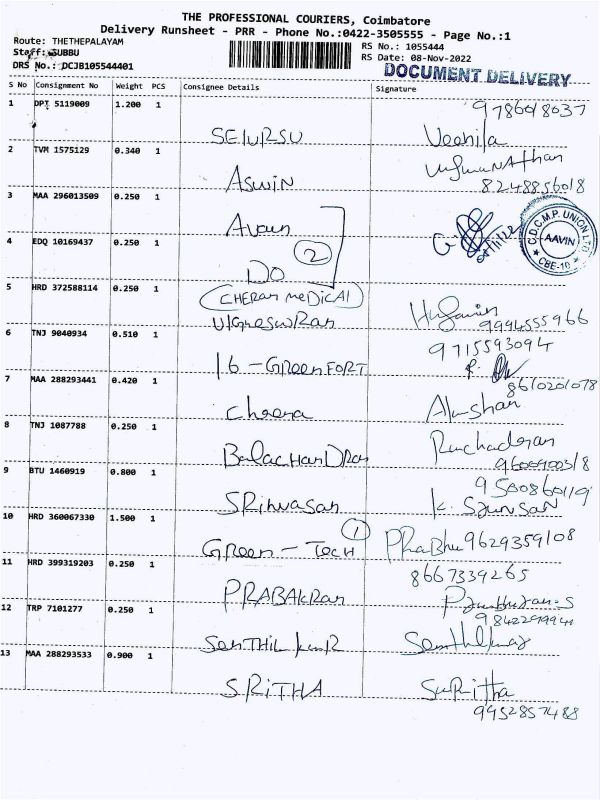 THE PROFESSIONAL COURIERS, Coimbatore
Delivery Runsheet - PRR - Phone No.:0422-3505555 - Page No.:1
Route: THETHEPALAYAM
RS No.: 1055444
Staff: SUBBU
RS Date: 08-Nov-2022
DRS No.: DCJB105544401
DOCUMENT DELIVERY
S No Consignment No Weight PCS Consignee Details Signature
1 DPT 5119009 1.200 1
2 TVM 1575129 0.340 1
ASWIN
8248856018
3 MAA 296013509 0.250 1
C.D.C.M.P. UNION LTD
AAVIN
CBE-10
4 EDQ 10169437 0.250 1
2
DO
5 HRD 372588114 0.250 1
CHERAN MEDICAL
VIGNESWRAN
9994555966
6 TNJ 9040934 0.510 1
9715593094
16 - GREEN FORT
8610201078
7 MAA 288293441 0.420 1
8 TNJ 1087788 0.250 1
BalaCHANDRan
9 BTU 1460919 0.800 1
SRinvasan
10 HRD 360067330 1.500 1
GREEN - TECH 1 Prabhu 9629359108
11 HRD 399319203 0.250 1
8667339265
PRABAKRan
12 TRP 7101277 0.250 1
SenTHIL kumR
13 MAA 288293533 0.900 1
SRITHA SuRitha
9952857488